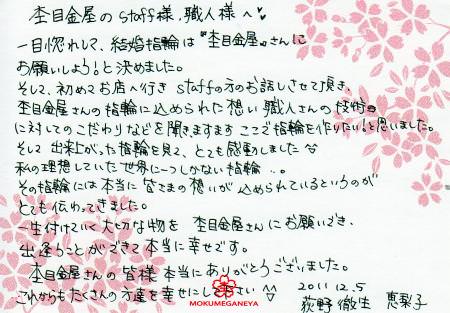 杢目金屋のstaff様,職人様へ♥
一目惚れして、結婚指輪は"杢目金屋"さんに
お願いしよう!と決めました。
そして、初めてお店へ行きstaffの方のお話しさせて頂き、
杢目金屋さんの指輪に込められた想い職人さんの技術
に対してのこだわりなどを聞きますますここで指輪を作りたい!と思いました。
そして出来上がった指輪を見て、とても感動しました^^
私の理想していた世界に一つしかない指輪...。
その指輪には本当に皆さまの想いが込められているというのが
とても伝わってきました。
一生付けていく大切な物を 杢目金屋さんにお願いでき、
出逢うことができて本当に幸せです。
杢目金屋さんの皆様本当にありがとうございました。
これからもたくさんの方達を幸せにして下さい^^
2011.12.5
荻野 徹生 恵梨子
MOKUMEGANEYA